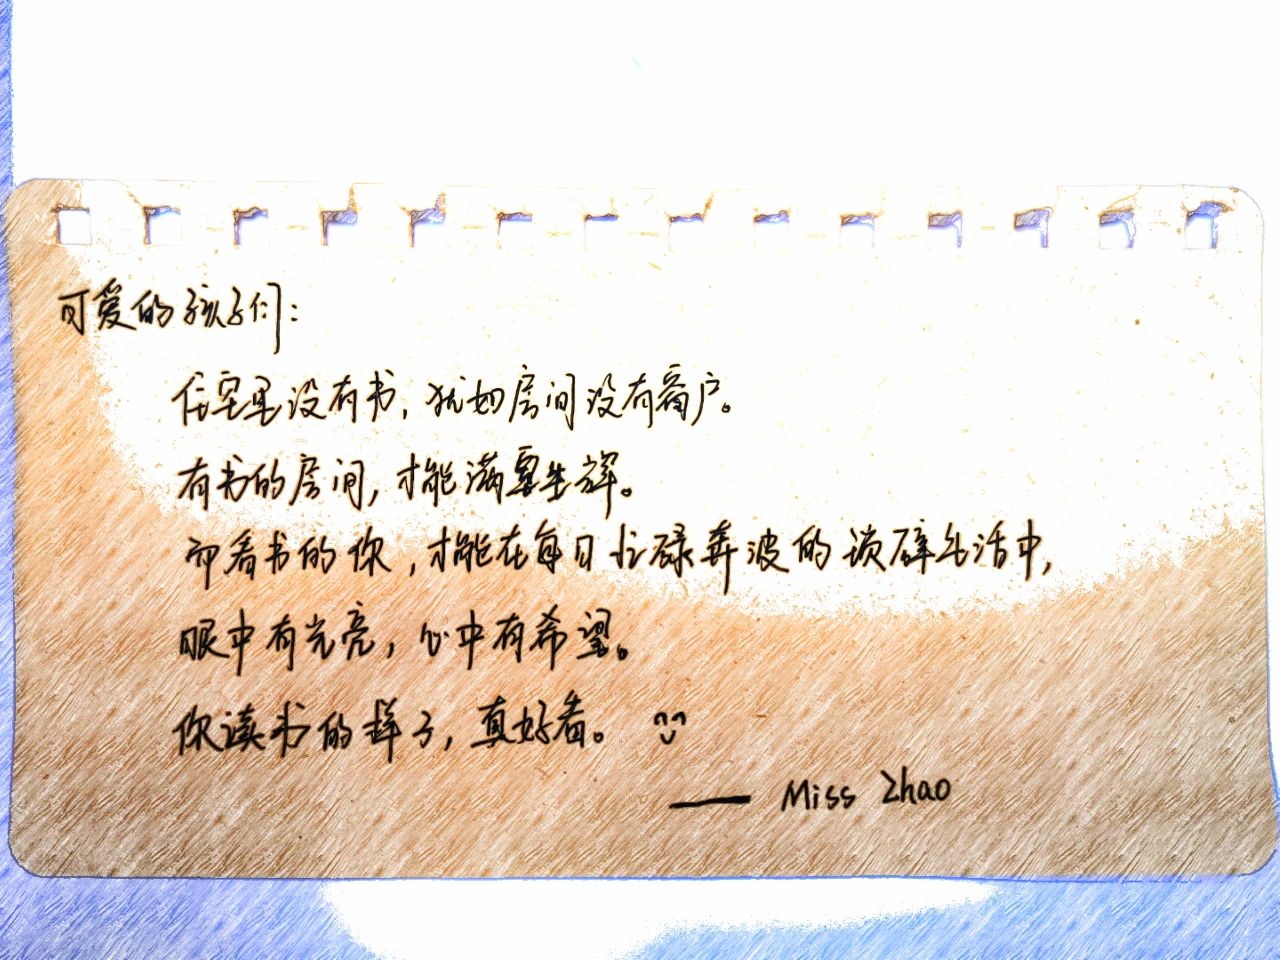 可爱的孩子们：
任室里没有书，犹如房间没有窗户。
有书的房间，才能满室生辉。
而看书的你，才能在每日忙碌奔波的琐碎生活中，
眼中有光亮，心中有希望。
你读书的样子，真好看。
—— Miss Zhao